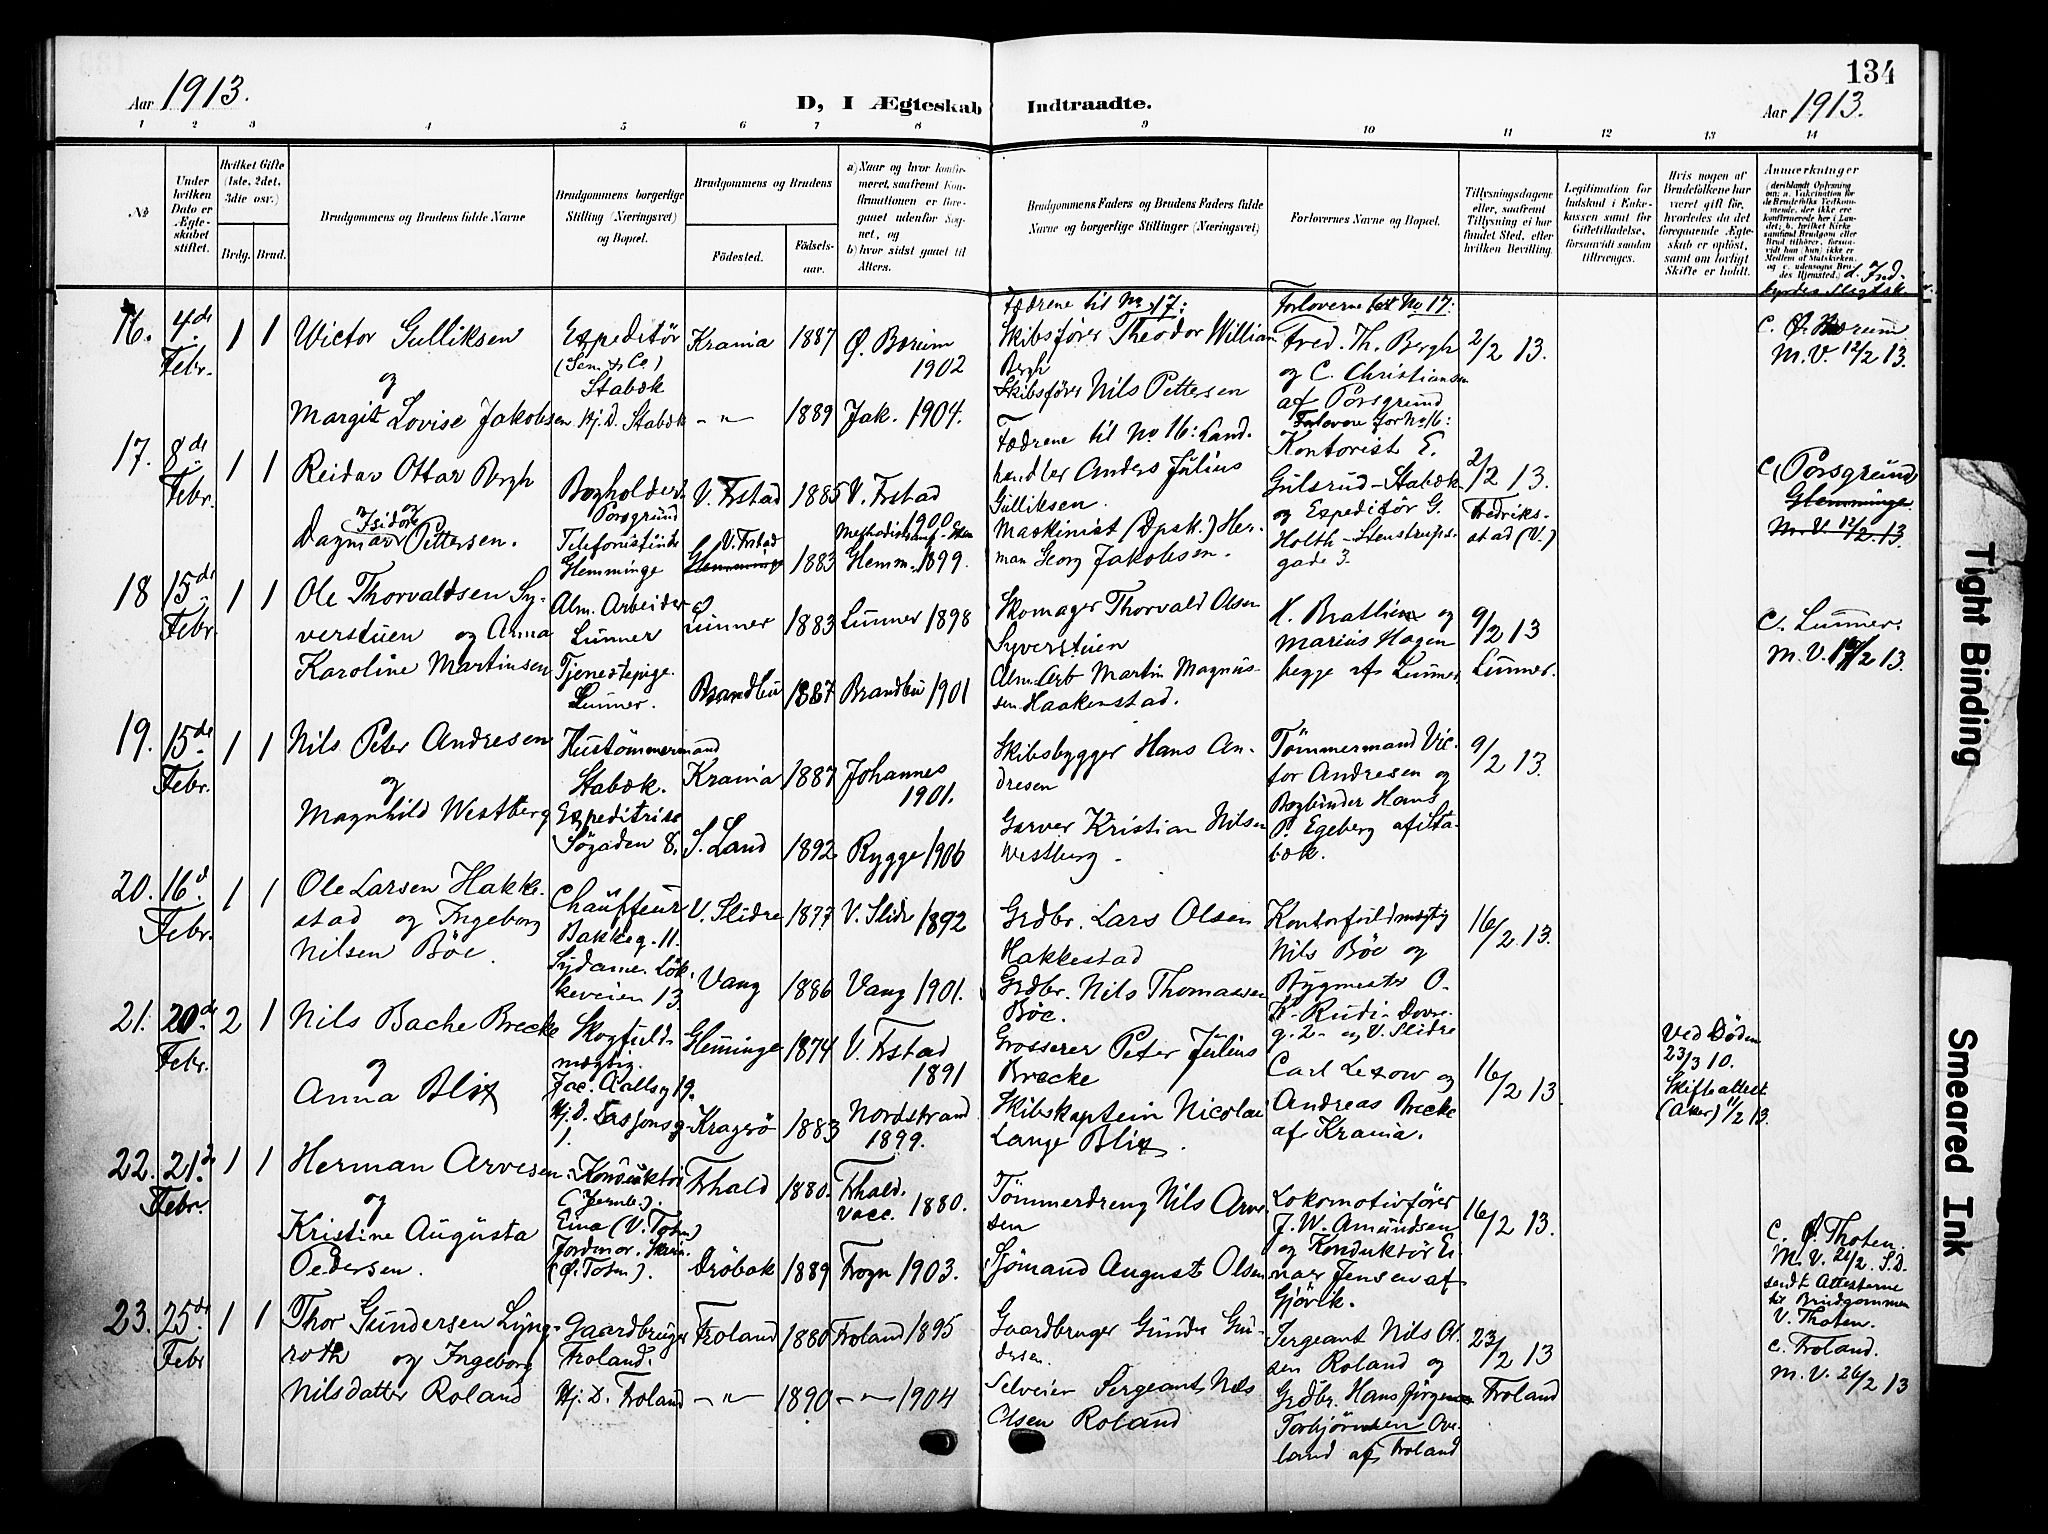 134
Aar 1913.
D, I Ægteskab Indtraadte.
Aar 1913.
1 2 3 4 5 6 7 8 9 10 11 12 13 14
No
Under hvilken Dato er Ægteskabet stiftet.
Hvilket Gifte (1ste, 2det, 3die osv.)
Brdg. Brud.
Brudgommens og Brudens fulde Navne
Brudgommens borgerlige Stilling (Næringsvei) og Bopæl.
Brudgommens og Brudens
Fødested.
Fødselsaar.
a) Naar og hvor konfirmeret, saafremt Konfirmationen er foregaaet udenfor Sognet, og
b) hvor sidst gaaet til Alters.
Brudgommens Faders og Brudens Faders fulde Navne og borgerlige Stillinger (Næringsvei)
Forlovernes Navne og Bopæl.
Tillysningsdagene eller, saafremt Tillysning ei har fundet Sted, efter hvilken Bevilling.
Legitimation for Indskud i Enkekassen samt for Giftetilladelse, forsaavidt saadan tiltrænges.
Hvis nogen af Brudefolkene har været gift før, hvorledes da det foregaaende Ægteskab er opløst, samt om lovligt Skifte er holdt.
Anmærkninger
16. 4de Febr. 1 1
Wictor Gulliksen
og
Margit Lovise Jakobsen
Expeditør
(Sen. & Co.)
Stabæk
Hj. D. Stabæk
Krania 1887 Ø. Bærum 1902
-"- 1889 Jak. 1904.
Fædrene til No 17:
Skibsfører Theodor William
Bergh
Skibsfører Nils Pettersen
Forloverne til No 17:
Fred. Th. Bergh
og C. Christiansen
af Porsgrund
2/2 13.
C. Ø. Bærum
M.V. 12/2 13.
17. 8de Febr. 1 1
Reidar Ottar Bergh
og
Dagmar Isidore Pettersen.
Bogholder
Porsgrund
Telefonistinde
Glemminge
V. Frstad 1885 V. Frstad 1900
V. Frstad
Glemminge 1883 Glemm. 1899.
Fædrene til No 16: Land.
handler Anders Julius
Gulliksen.
Maskinist (Dpsk.) Her-
man Georg Jakobsen.
Forlovere for No 16:
Kontorist E.
Gulsrud - Stabæk
og Expeditør G.
Holth - Stenstrups-
gade 3.
2/2 13.
Fredriks-
stad (V.)
C. Porsgrund
Glemminge
M.V. 12/2. 13.
18 15de Febr. 1 1
Ole Thorvaldsen Sy-
verstuen og Anna
Karoline Martinsen
Alm. Arbeider
Lunner
Tjenestepige.
Lunner.
Lunner 1883 Lunner 1898
Brandbu 1887 Brandbu 1901
Skomager Thorvald Olsen
Syverstuen
Alm. Arb Martin Magnus-
sen Haakenstad.
H. Brathen og
Marius Hagen
begge af Lunner
9/2 13
Lunner.
C. Lunner.
19. 15de Febr. 1 1
Nils Peter Andresen
og
Magnhild Westberg
Hustømmermand
Stabæk.
Expeditrise
Søgaden 8.
Krania 1887 Johannes 1901.
S. Land 1892 Rygge 1906
Skibsbygger Hans An-
dresen
Garver Kristian Nilsen
Westberg -
Tømmermand Vic-
tor Andresen og
Bogbinder Hans
P. Egeberg af Sta-
bæk.
9/2 13.
20. 16d Febr. 1 1
Ole Larsen Hakke-
stad og Ingeborg
Nilsen Böe.
Chauffeur
Bakkeg. 11.
Sydame. Løk-
keveien 13
V. Slidre 1877 V. Slidr 1892
Vang 1886 Vang 1901.
Grdbr. Lars Olsen
Hakkestad
Grdbr. Nils Thomassen
Böe.
Kontorfuldmægtig
Nils Böe og
Bygmester O.
K. Rudi - Dovre-
g. 2 - og V. Slidre
16/2 13.
21. 20de Febr. 2 1
Nils Bache Brecke
og
Anna Blix
Skogfuld-
mægtig.
Jac. Aallsg 19.
Glemminge 1874 V. Frstad 1891
Kragerö 1883 Nordstrand 1899.
Grosserer Peter Julius
Brecke
Skibskaptein Nicolai
Lange Blix.
Carl Lexow og
Andreas Brecke
af Krania.
16/2 13.
Ved Døden
23/3 10.
Skifteattest
(Aker) 11/2 13.
22. 21de Febr. 1 1
Herman Arvesen
og
Kristine Augusta
Pedersen.
Konduktør
(Jernb.).
Eina (V. Toten)
Jordmor. Skrei.
(Ø. Toten).
Frhald 1880. Frhald. Vacc. 1880.
Drøbak 1889 Frogn 1903.
Tømmerdreng Nils Arve-
sen
Sjömand August Olsen
Lokomotivfører
J. W. Amundsen
og Konduktör Ei-
nar Jensen af
Gjövik.
16/2 13.
C. Ø. Thoten.
M.V. 26/2. S.D.
sendt Attesterne
til Brudgommen
V. Thoten.
23. 25de Febr 1 1
Thor Gundersen Lyng-
roth og Ingeborg
Nilsdatter Roland
Gaardbruger
Froland.
Hj. D. Froland
Froland 1880 Froland 1895
-"- 1890 -"- 1904
Gaardbruger Gunder Gun-
dersen.
Selveier Sergeant Nils
Olsen Roland
Sergeant Nils Ol-
sen Roland og
Grdbr. Hans Jörgen
Torbjörnsen Ove-
land af Froland
23/2 13
Froland
C. Froland.
M.V. 26/2 13
Tight Binding
Smeared Ink